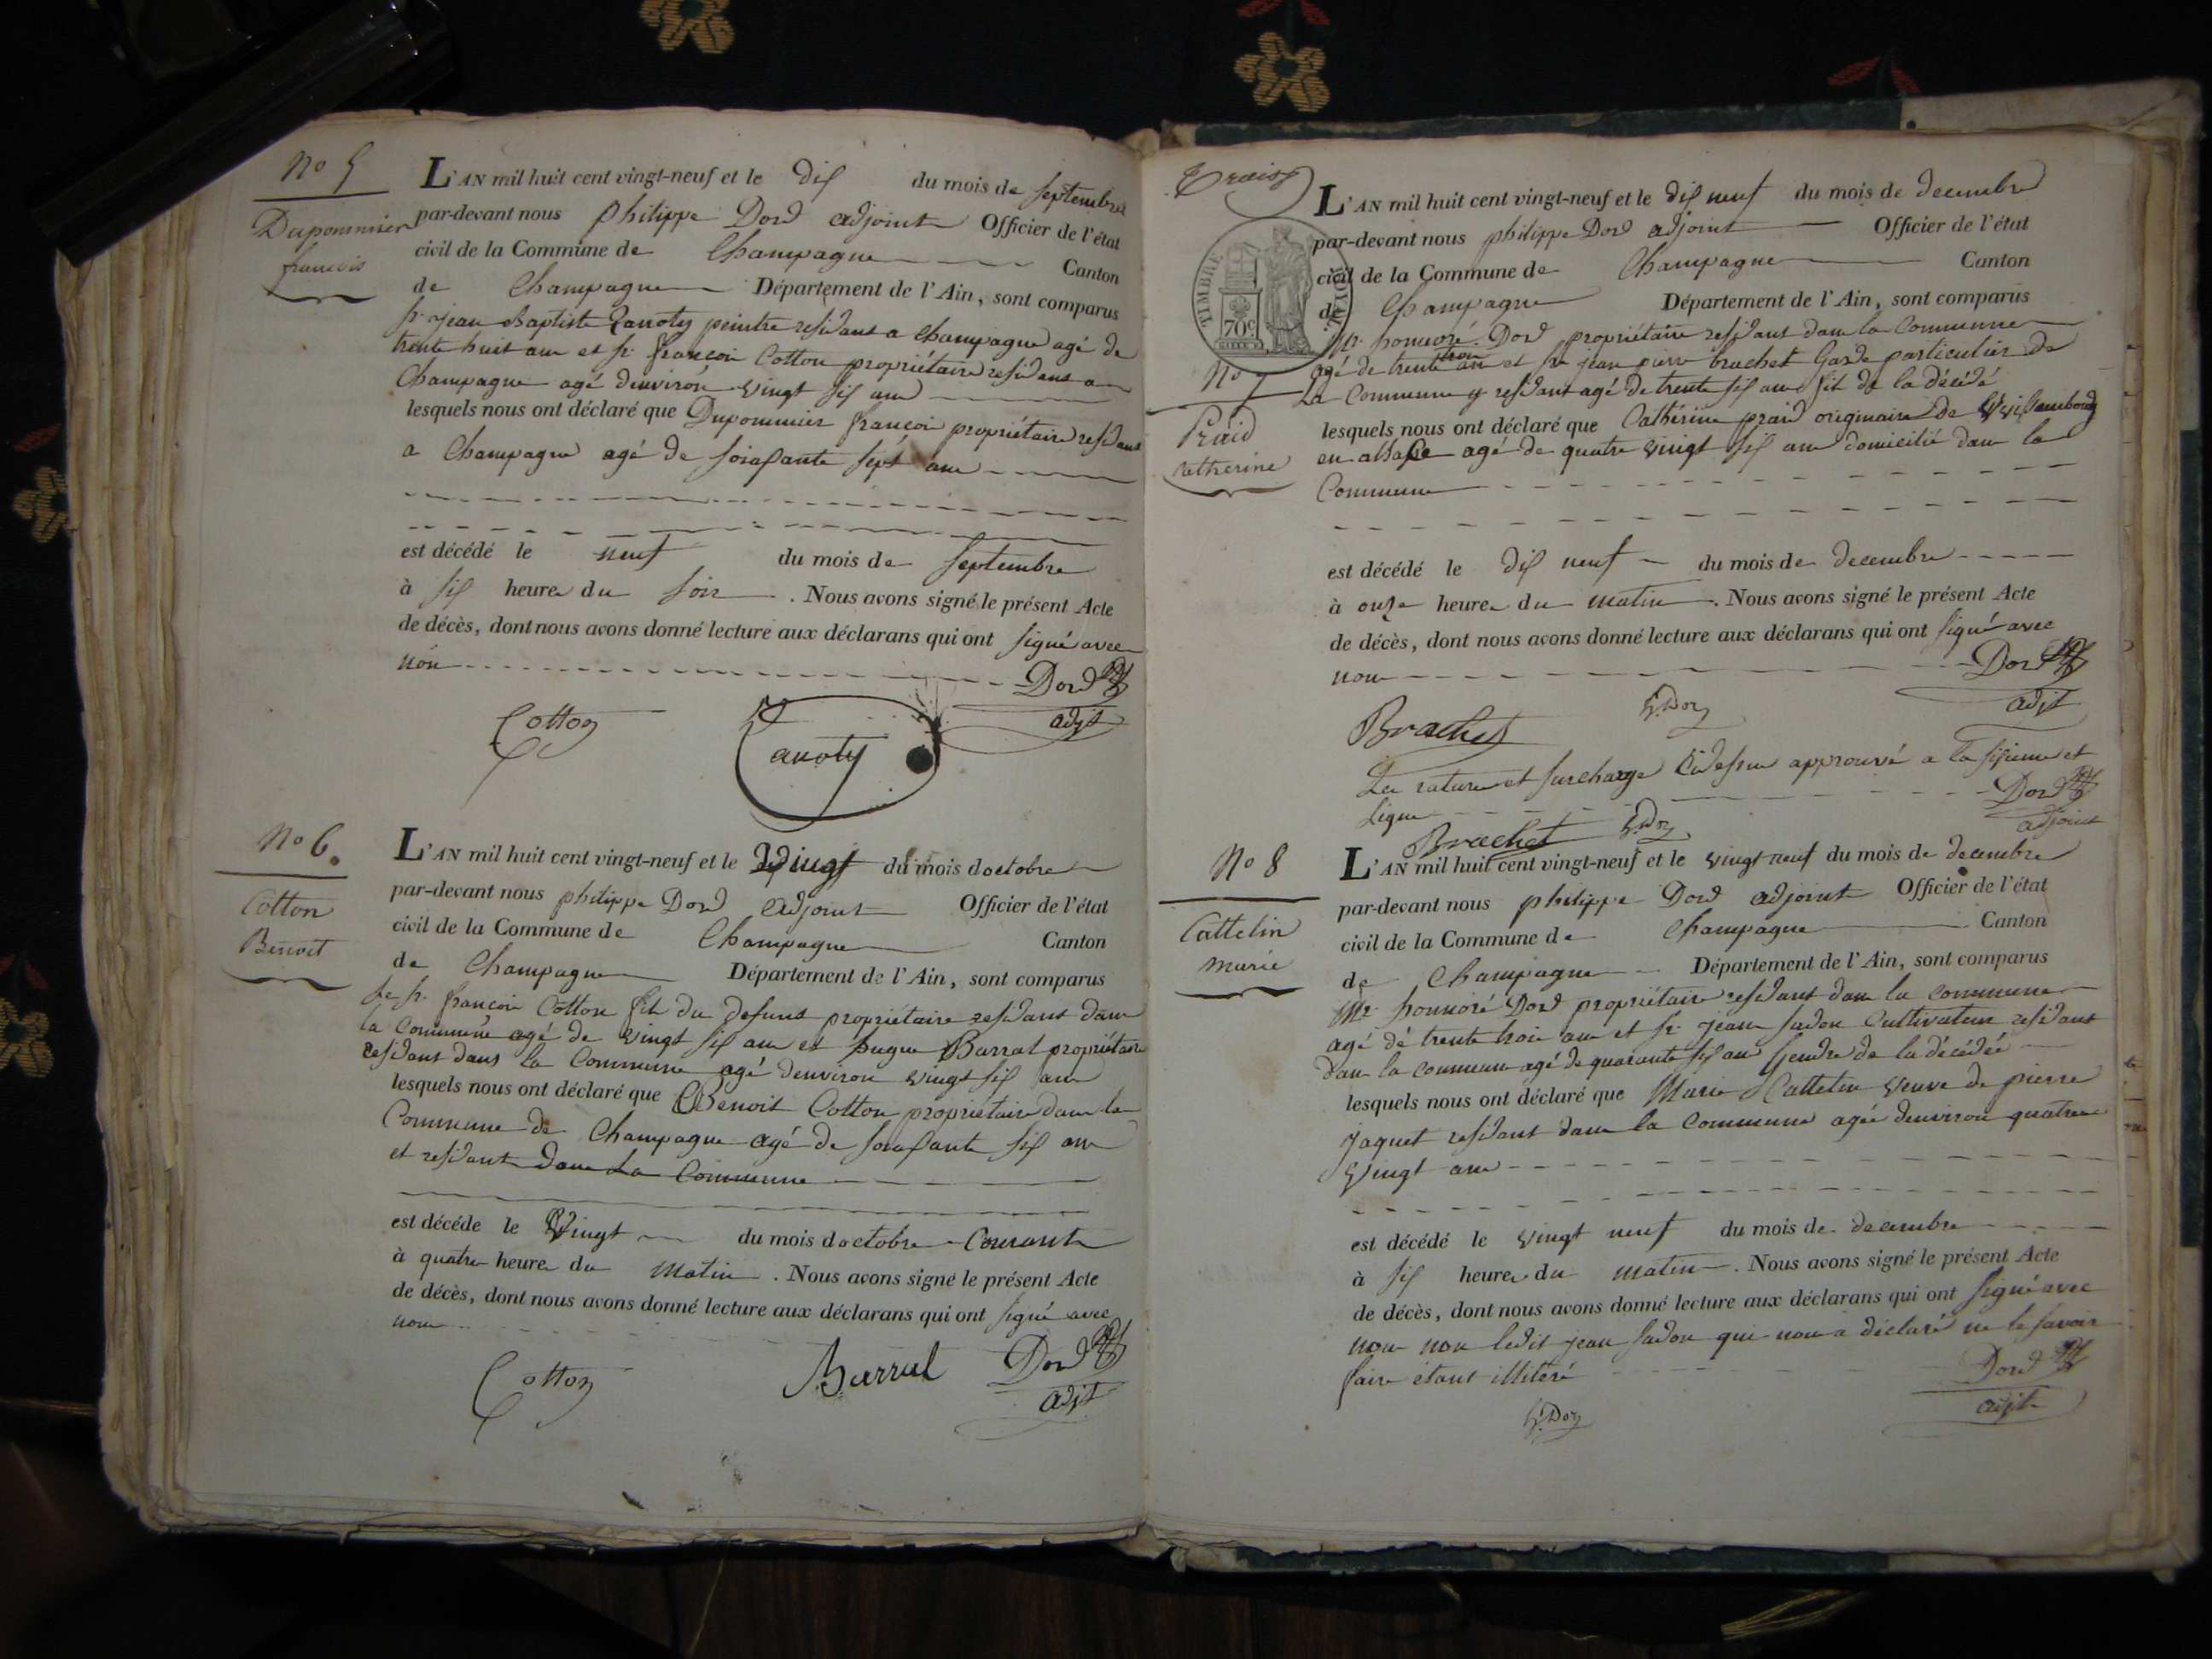 No 5
Dupommier
francois
L'AN mil huit cent vingt-neuf et le dix du mois de septembre
par-devant nous philippe Dord adjoint Officier de l'état
civil de la Commune de Champagne Canton
de Champagne Département de l'Ain, sont comparus
sr. jean Baptiste Zanoty peintre residant a Champagne agé de
trente huit ans et sr. françois Cotton propriétaire residant a
Champagne agé denviron vingt six ans
lesquels nous ont déclaré que Dupommier françois propriétaire residant
a Champagne agé de soixante sept ans
est décédé le neuf du mois de septembre
à six heures du soir. Nous avons signé le présent Acte
de décès, dont nous avons donné lecture aux déclarans qui ont signé avec
nous
Dord
adjt
Cotton
Zanoty
No 6.
Cotton
Benoit
L'AN mil huit cent vingt-neuf et le vingt du mois doctobre
par-devant nous philippe Dord adjoint Officier de l'état
civil de la Commune de Champagne Canton
de Champagne Département de l'Ain, sont comparus
sr. françois Cotton fils du defunt propriétaire residant dans
la Commune agé de vingt six ans et hugue Barral propriétaire
residant dans la Commune agé denviron vingt six ans
lesquels nous ont déclaré que Benoit Cotton propriétaire dans la
Commune de Champagne agé de soixante six ans
et residant dans la Commune
est décédé le vingt du mois doctobre Courant
à quatre heures du matin. Nous avons signé le présent Acte
de décès, dont nous avons donné lecture aux déclarans qui ont signé avec
nous
Cotton Barral Dord
adjt
Trois
TIMBRE ROYAL
70c
L'AN mil huit cent vingt-neuf et le dix neuf du mois de decembre
par-devant nous philippe Dord adjoint Officier de l'état
civil de la Commune de Champagne Canton
de Champagne Département de l'Ain, sont comparus
Mr. honnoré Dord propriétaire residant dans la Commune
agé de trente trois ans et sr jean pierre brachet Garde particulier de
No 7
Praid
Catherine
La Commune y residant agé de trente six ans fils de la décédé
lesquels nous ont déclaré que Catherine praid originaire de Wissembourg
en alsace agé de quatre vingt six ans domicilié dans la
Commune
est décédé le dix neuf du mois de decembre
à onze heures du matin. Nous avons signé le présent Acte
de décès, dont nous avons donné lecture aux déclarans qui ont signé avec
nous
Dord
adjt
Brachet h. Dord
La rature et surcharge cidessus approuvé a la sixieme et
ligne
Dord
adjoint
Brachet h. Dord
No 8
Cattelin
marie
L'AN mil huit cent vingt-neuf et le vingt neuf du mois de decembre
par-devant nous philippe Dord adjoint Officier de l'état
civil de la Commune de Champagne Canton
de Champagne Département de l'Ain, sont comparus
Mr. honnoré Dord propriétaire residant dans la commune
agé de trente trois ans et sr. jean sadou Cultivateur residant
dans la commune agé de quarante six ans Gendre de la décédée
lesquels nous ont déclaré que Marie Cattelin veuve de pierre
jaquet residant dans la Commune agée denviron quatre
vingt ans
est décédé le vingt neuf du mois de decembre
à six heures du matin. Nous avons signé le présent Acte
de décès, dont nous avons donné lecture aux déclarans qui ont signé avec
nous non ledit jean sadou qui nous a déclaré ne le savoir
faire étant illitéré
Dord
adjt
h. Dord